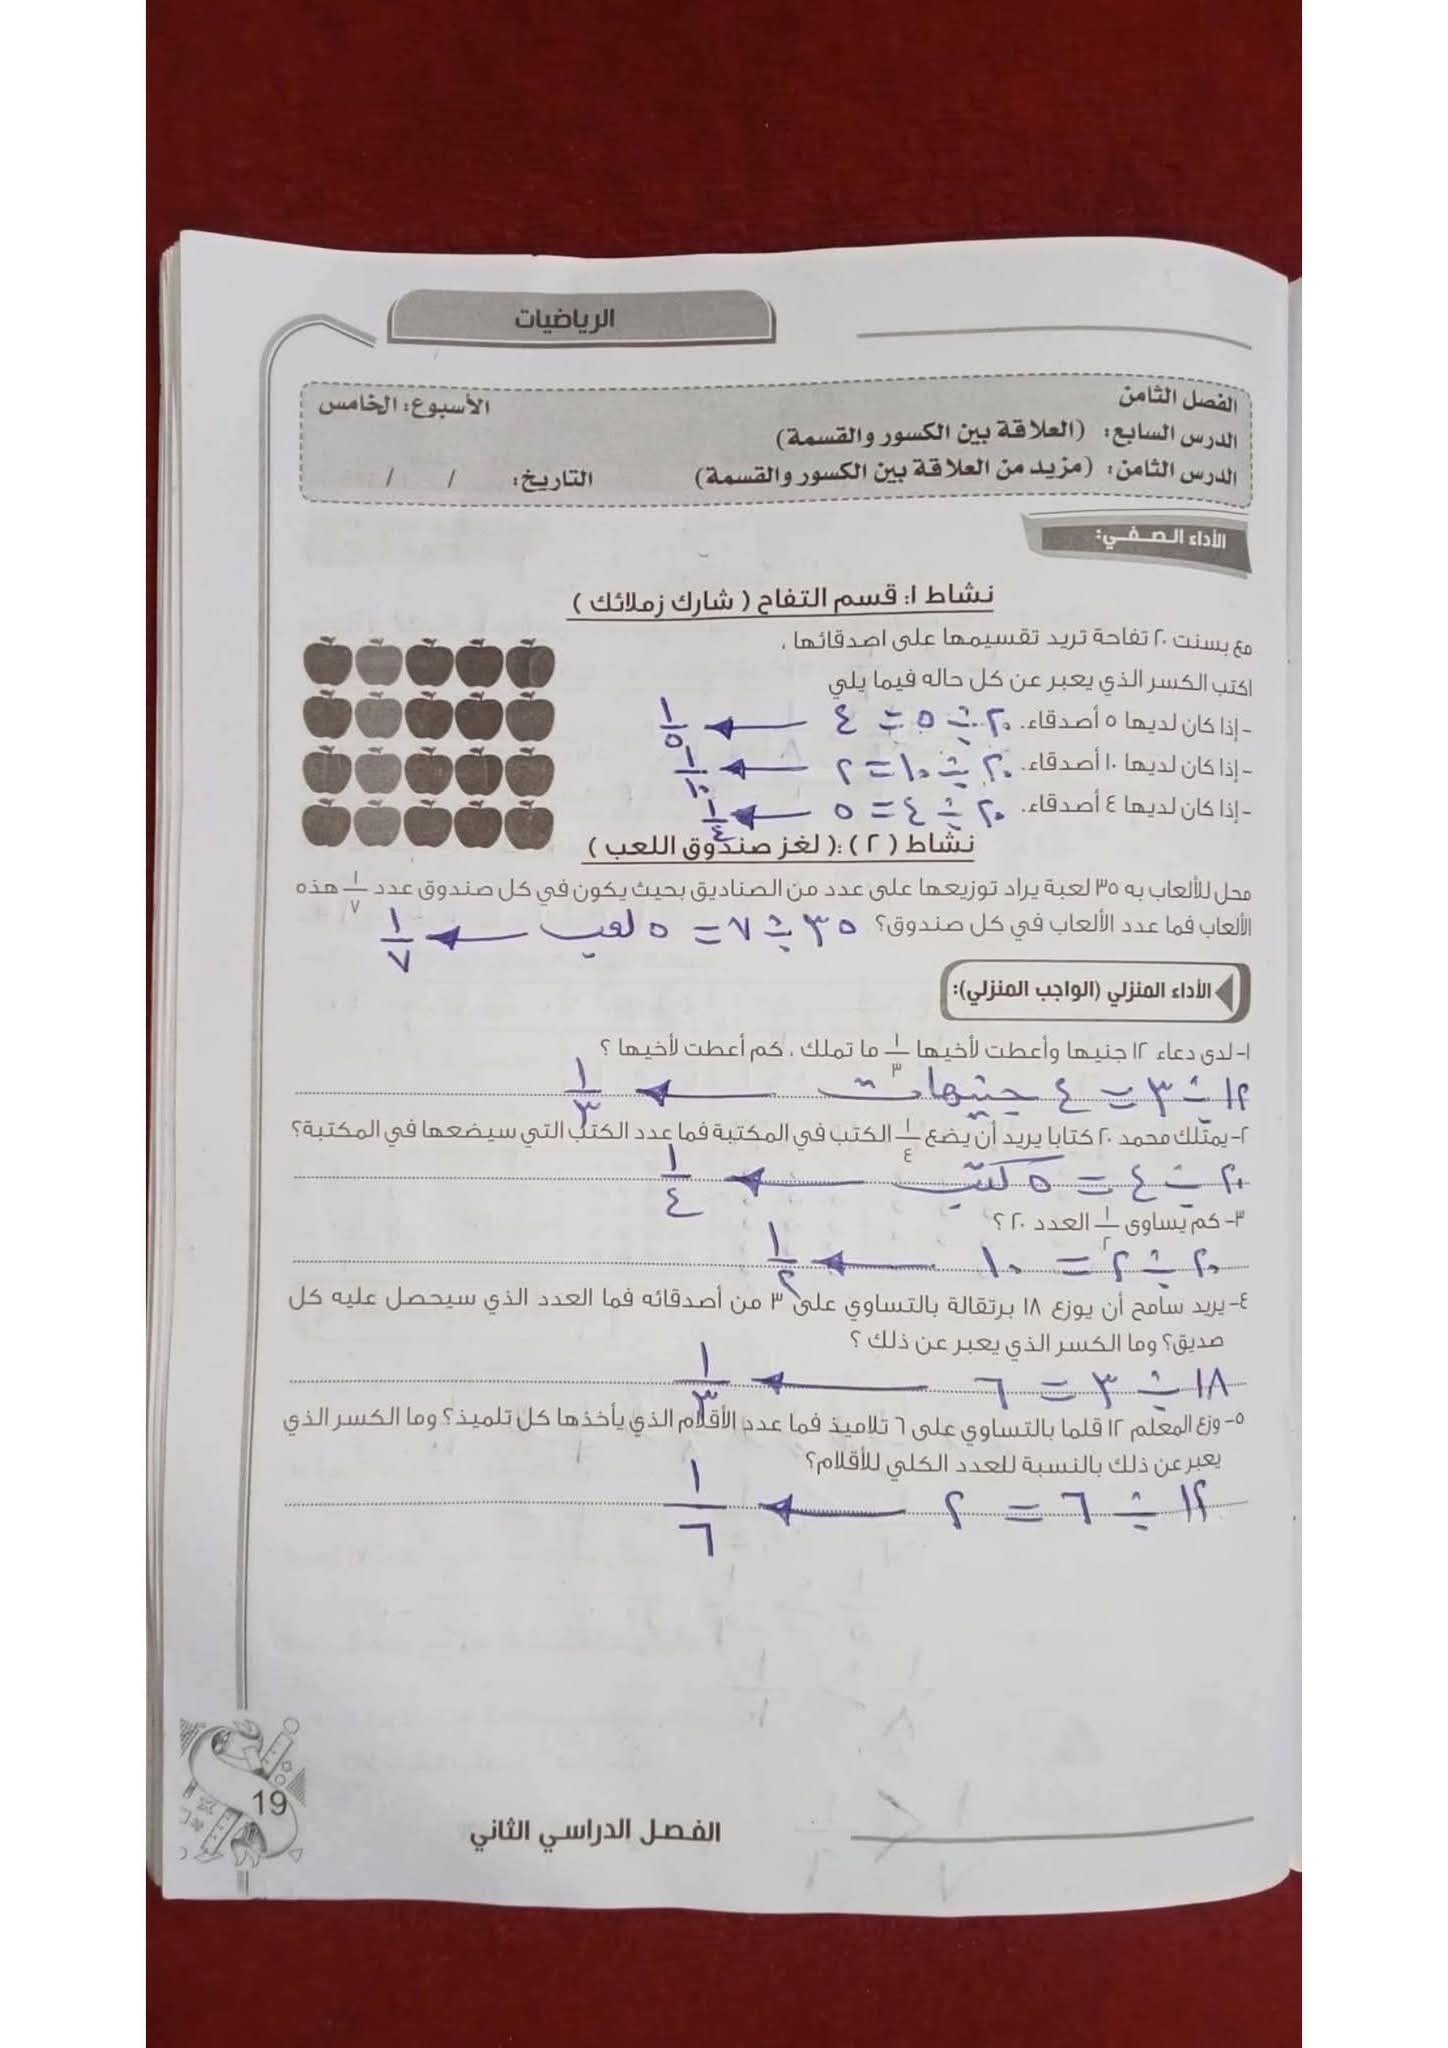 الرياضيات
الفصل الثامن
الأسبوع: الخامس
الدرس السابع: (العلاقة بين الكسور والقسمة)
الدرس الثامن: (مزيد من العلاقة بين الكسور والقسمة) التاريخ: / /
الأداء الصفي:
نشاط ١: قسم التفاح ( شارك زملائك )
مع بسنت ٢٠ تفاحة تريد تقسيمها على اصدقائها ،
اكتب الكسر الذي يعبر عن كل حاله فيما يلي
- إذا كان لديها ٥ أصدقاء. ٢٠ ÷ ٥ = ٤ ← ١/٥
- إذا كان لديها ١٠ أصدقاء. ٢٠ ÷ ١٠ = ٢ ← ١/١٠
- إذا كان لديها ٤ أصدقاء. ٢٠ ÷ ٤ = ٥ ← ١/٤
نشاط ( ٢ ) : ( لغز صندوق اللعب )
محل للألعاب به ٣٥ لعبة يراد توزيعها على عدد من الصناديق بحيث يكون في كل صندوق عدد ١/٧ هذه
الألعاب فما عدد الألعاب في كل صندوق؟ ٣٥ ÷ ٧ = ٥ لعب ← ١/٧
الأداء المنزلي (الواجب المنزلي):
١- لدى دعاء ١٢ جنيها وأعطت لأخيها ١/٣ ما تملك ، كم أعطت لأخيها ؟
١٢ ÷ ٣ = ٤ جنيهات ← ١/٣
٢- يمتلك محمد ٢٠ كتابا يريد أن يضع ١/٤ الكتب في المكتبة فما عدد الكتب التي سيضعها في المكتبة؟
٢٠ ÷ ٤ = ٥ كتب ← ١/٤
٣- كم يساوى ١/٢ العدد ٢٠ ؟
٢٠ ÷ ٢ = ١٠ ← ١/٢
٤- يريد سامح أن يوزع ١٨ برتقالة بالتساوي على ٣ من أصدقائه فما العدد الذي سيحصل عليه كل
صديق؟ وما الكسر الذي يعبر عن ذلك ؟
١٨ ÷ ٣ = ٦ ← ١/٣
٥- وزع المعلم ١٢ قلما بالتساوي على ٦ تلاميذ فما عدد الأقلام الذي يأخذها كل تلميذ؟ وما الكسر الذي
يعبر عن ذلك بالنسبة للعدد الكلي للأقلام؟
١٢ ÷ ٦ = ٢ ← ١/٦
19
الفصل الدراسي الثاني